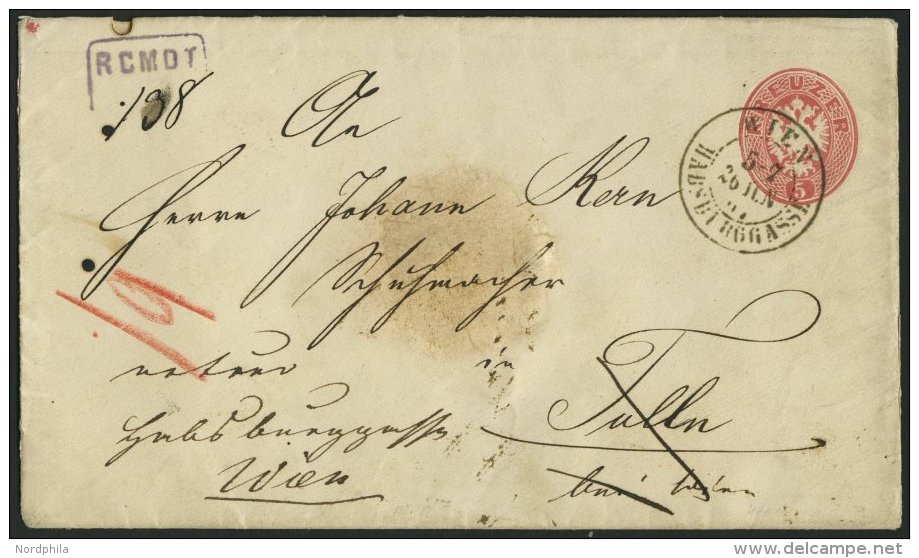 RCMDT
138
KREUZER
An
5
WIEN
5-7
26 JUN
HABSBURGGASSE
Herrn Johann Kern
Schuhmacher
19
retour in Tulln
Habsburggasse
Wien bei Wien
Nordphila delcampe.net